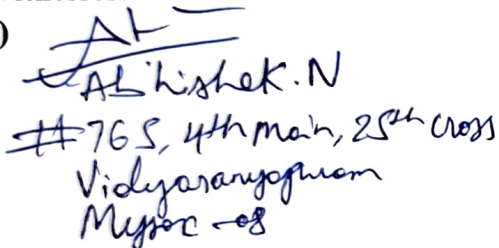 Abhishek.N
#765, 4th main, 25th cross
Vidyaranyapuram
Mysore -08